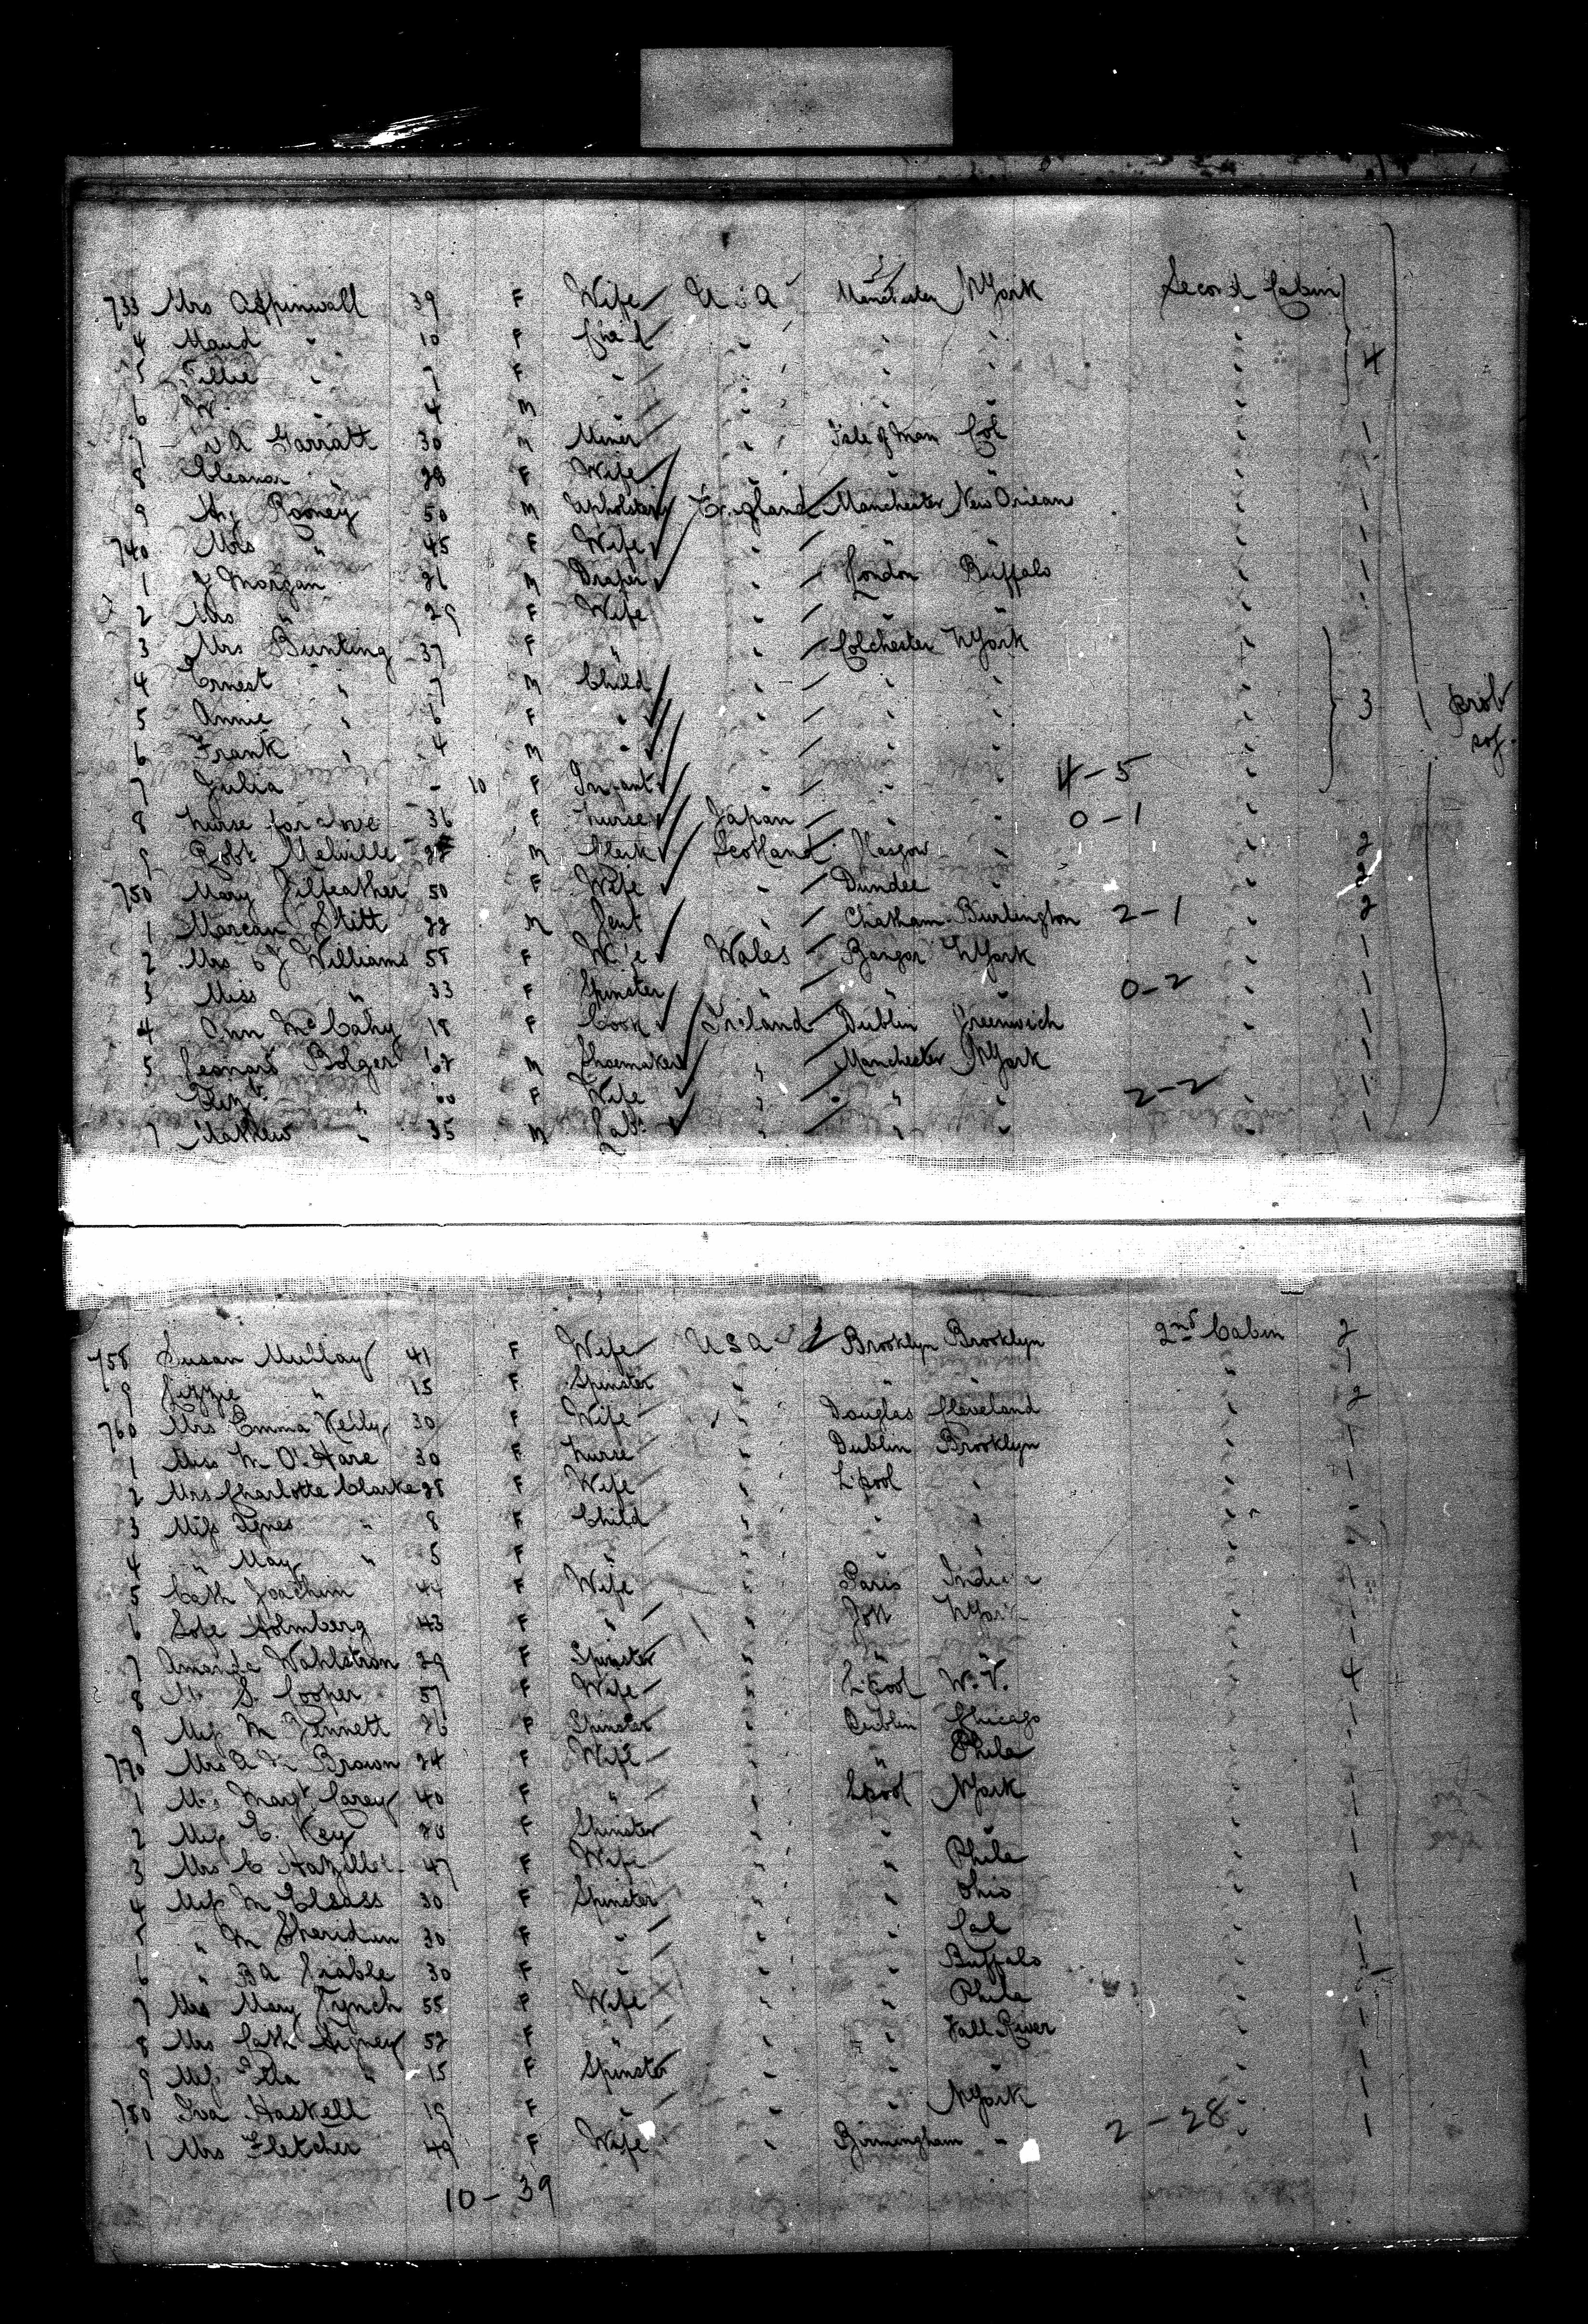 733 Mrs Aspinwall 39 F Wife U S A Manchester NYork Second Cabin
4 Maud " 10 F Child " " " "
5 Tillie " 7 F " " " " " 4
6 W. " 4 M " " " " "
7 A Garratt 30 M Miner " Isle of Man Col " 1
8 Eleanor " 28 F Wife " " " " 1
9 Hy Rooney 50 M Upholsterer England Manchester New Orleans " 1
740 Mrs " 45 F Wife " " " " 1
1 J Morgan 26 M Draper " London Buffalo " 1
2 Mrs " 29 F Wife " " " " 1
3 Mrs Bunting 37 F " " Colchester NYork "
4 Ernest " 7 M Child " " " "
5 Annie " 6 F " " " " " 3 prob
6 Frank " 4 M " " " " "
7 Julia - 10 F Infant " " " 4-5 "
8 Nurse for above 36 F Nurse Japan " " 0-1 "
9 Robt Melville M Clerk Scotland Glasgow " " 2
750 Mary Gilfeather 50 F Wife " Dundee " " 2
1 Stitt 22 M Gent " Chatham Burlington 2-1 " 2
2 Mrs J Williams 55 F Wife Wales Bangor NYork " 1
3 Miss " 33 F Spinster " " " 0-2 " 1
4 Ann McCahy 18 F Cook Ireland Dublin Greenwich " 1
5 Leonard Bolger 62 M Shoemaker " Manchester NYork 1
Eliz " 60 F Wife " " " 2-2 " 1
7 Mathew " 35 M Labr " " " " 1
758 Susan Mullay 41 F Wife U S A Brooklyn Brooklyn 2nd Cabin 2
9 Lizzie " 15 F Spinster " " " " 1
760 Mrs Emma Kelly 30 F Wife " Douglas Cleveland " 2
1 Miss M O'Hare 30 F Nurse " Dublin Brooklyn " 1
2 Mrs Charlotte Clarke 28 F Wife " L'pool " " 1
3 Miss Agnes " 8 F Child " " " " -
4 " May " 5 F " " " " " -
5 Cath Joachim 44 F Wife " Paris " 1
6 Holmberg 43 F " " NYork " 1
7 Amanda Wahlstrom 29 F Spinster " " " " 1
8 S. Cooper 57 F Wife " L'pool W. V. " 4
9 Miss M Jennett 26 F Spinster " Dublin Chicago " 1
770 Mrs A M Brown 24 F Wife " " Phila " 1
1 Margt Carey 40 F " " Lpool NYork " 1
2 Miss E. Key 20 F Spinster " " " " 1
3 Mrs C 47 F Wife " " Phila " 1
4 Miss M Elsass 30 F Spinster " " Ohio " 1
5 " M Sheridan 30 F " " " Cal " 1
6 " B A 30 F " " " Buffalo " 1
7 Mrs Mary Lynch 55 F Wife " " Phila " 1
8 Mrs Cath Higney 52 F " " " Fall River " 1
9 Miss Etta " 15 F Spinster " " " " 1
780 Iva Haskell 19 F " " " NYork " 1
1 Mrs Fletcher 49 F Wife " Birmingham " 2-28 " 1
10-39